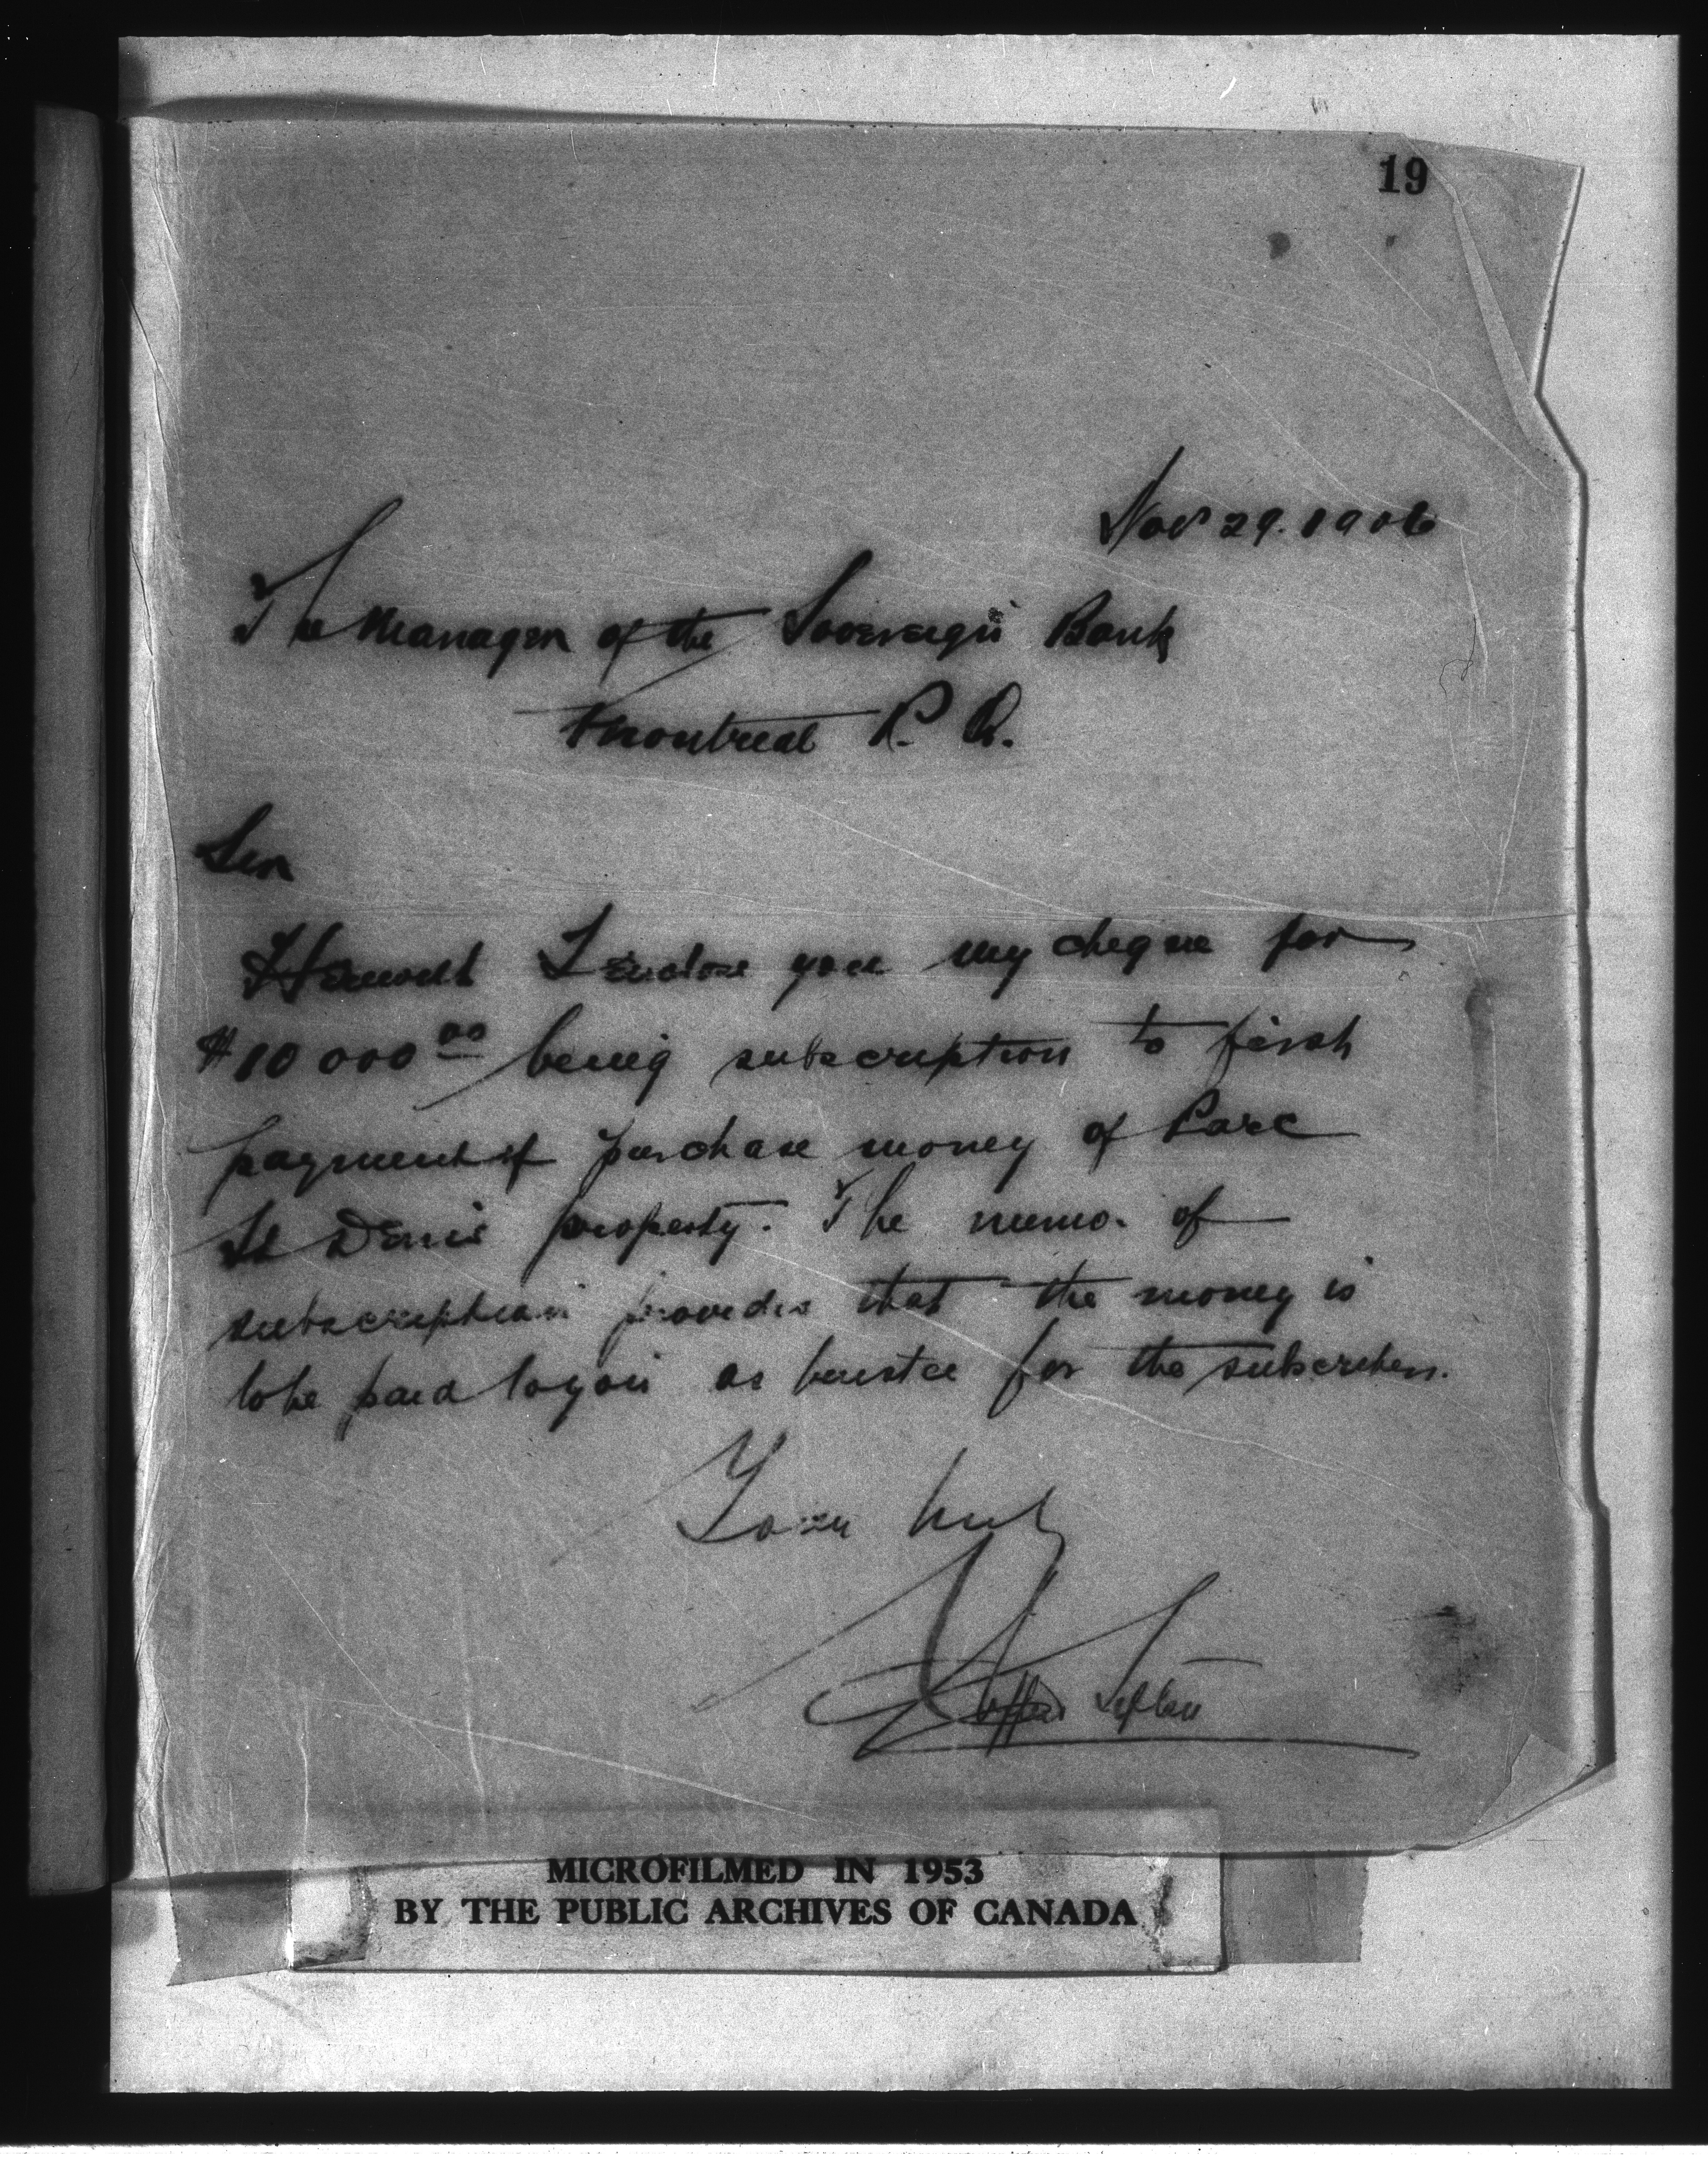 19
Nov 29. 1906
The Manager of the Sovereign Bank
Montreal P. Q.
Sir
Herewith I enclose you my cheque for
$10 000 00 being subscription to first
payment of purchase money of Parc
St Denis property. The memo. of
subscription provides that the money is
to be paid to you as trustee for the subscribers.
Yours truly
Clifford Sifton
MICROFILMED IN 1953
BY THE PUBLIC ARCHIVES OF CANADA